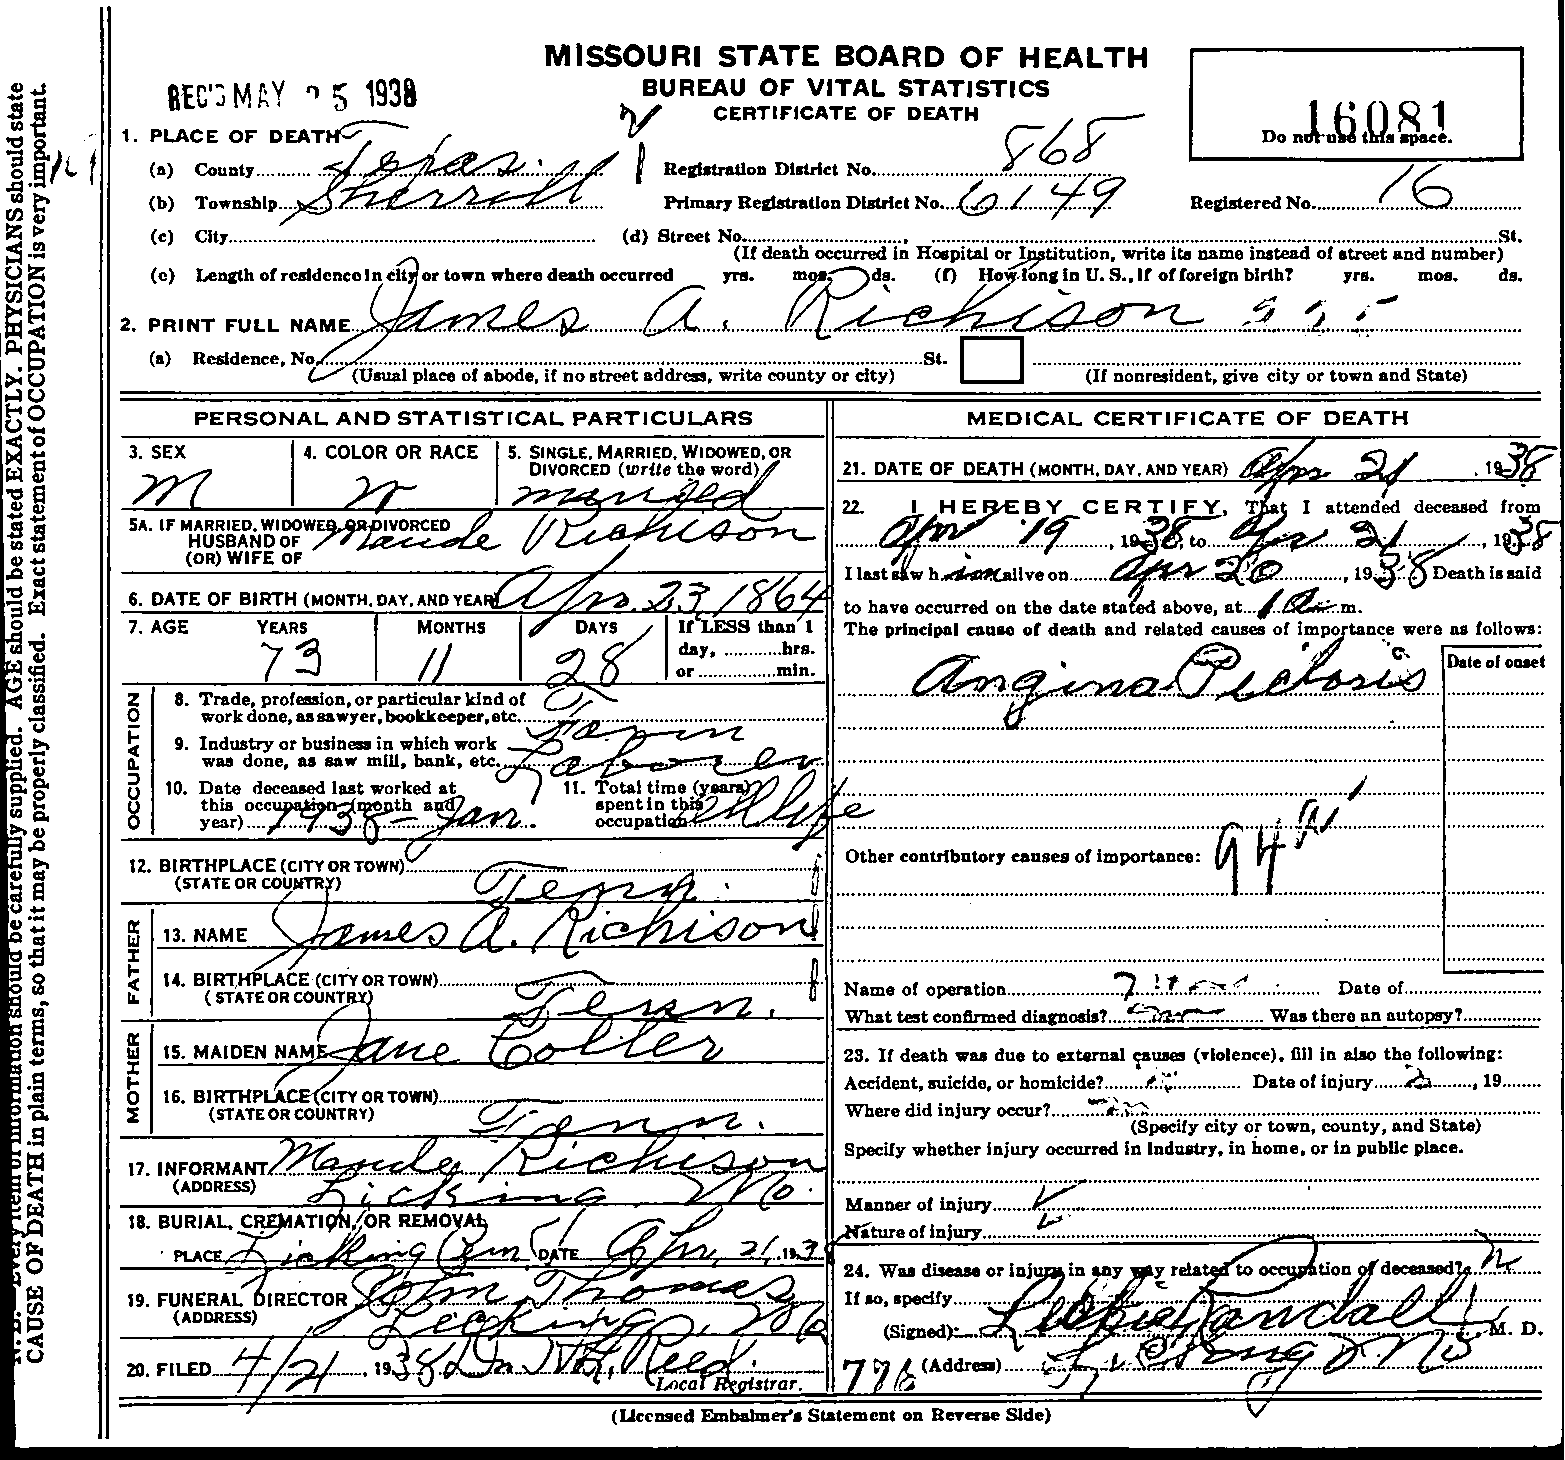 MISSOURI STATE BOARD OF HEALTH
BUREAU OF VITAL STATISTICS
CERTIFICATE OF DEATH
REC'D MAY 25 1938
16081
Do not use this space.
1. PLACE OF DEATH
(a) County Texas
Registration District No. 868
(b) Township Sherrill
Primary Registration District No. 6149
Registered No. 16
(c) City
(d) Street No. St.
(If death occurred in Hospital or Institution, write its name instead of street and number)
(e) Length of residence in city or town where death occurred yrs. mos. ds. (f) How long in U. S., if of foreign birth? yrs. mos. ds.
2. PRINT FULL NAME James A. Richison
(a) Residence, No. St.
(Usual place of abode, if no street address, write county or city)
(If nonresident, give city or town and State)
PERSONAL AND STATISTICAL PARTICULARS
3. SEX M
4. COLOR OR RACE W
5. SINGLE, MARRIED, WIDOWED, OR DIVORCED (write the word) married
5A. IF MARRIED, WIDOWED, OR DIVORCED
HUSBAND OF Maude Richison
(OR) WIFE OF
6. DATE OF BIRTH (MONTH, DAY, AND YEAR) Apr. 23, 1864
7. AGE YEARS MONTHS DAYS If LESS than 1
73 11 28 day, hrs.
or min.
OCCUPATION
8. Trade, profession, or particular kind of
work done, as sawyer, bookkeeper, etc. Farm
9. Industry or business in which work
was done, as saw mill, bank, etc. Laborer
10. Date deceased last worked at
this occupation (month and
year) 1938 - Jan.
11. Total time (years)
spent in this
occupation All life
12. BIRTHPLACE (CITY OR TOWN)
(STATE OR COUNTRY) Tenn.
FATHER
13. NAME James A. Richison
14. BIRTHPLACE (CITY OR TOWN)
(STATE OR COUNTRY) Tenn.
MOTHER
15. MAIDEN NAME Jane Colter
16. BIRTHPLACE (CITY OR TOWN)
(STATE OR COUNTRY) Tenn.
17. INFORMANT Maude Richison
(ADDRESS) Licking, Mo.
18. BURIAL, CREMATION, OR REMOVAL
PLACE Licking Cem. DATE Apr. 21, 1938
19. FUNERAL DIRECTOR John Thomas
(ADDRESS) Licking, Mo
20. FILED 4/21, 1938 Reed.
Local Registrar.
MEDICAL CERTIFICATE OF DEATH
21. DATE OF DEATH (MONTH, DAY, AND YEAR) Apr 21, 1938
22. I HEREBY CERTIFY, That I attended deceased from
Apr 19, 1938, to Apr 21, 1938
I last saw him alive on Apr 20, 1938 Death is said
to have occurred on the date stated above, at 1 a. m.
The principal cause of death and related causes of importance were as follows:
Date of onset
Angina Pectoris
Other contributory causes of importance:
94
Name of operation Date of
What test confirmed diagnosis? Was there an autopsy?
23. If death was due to external causes (violence), fill in also the following:
Accident, suicide, or homicide? Date of injury , 19
Where did injury occur?
(Specify city or town, county, and State)
Specify whether injury occurred in industry, in home, or in public place.
Manner of injury
Nature of injury
24. Was disease or injury in any way related to occupation of deceased? N
If so, specify
(Signed) Leslie Randall, M. D.
776 (Address) Licking Mo
(Licensed Embalmer's Statement on Reverse Side)
N. B.—Every item of information should be carefully supplied. AGE should be stated EXACTLY. PHYSICIANS should state
CAUSE OF DEATH in plain terms, so that it may be properly classified. Exact statement of OCCUPATION is very important.